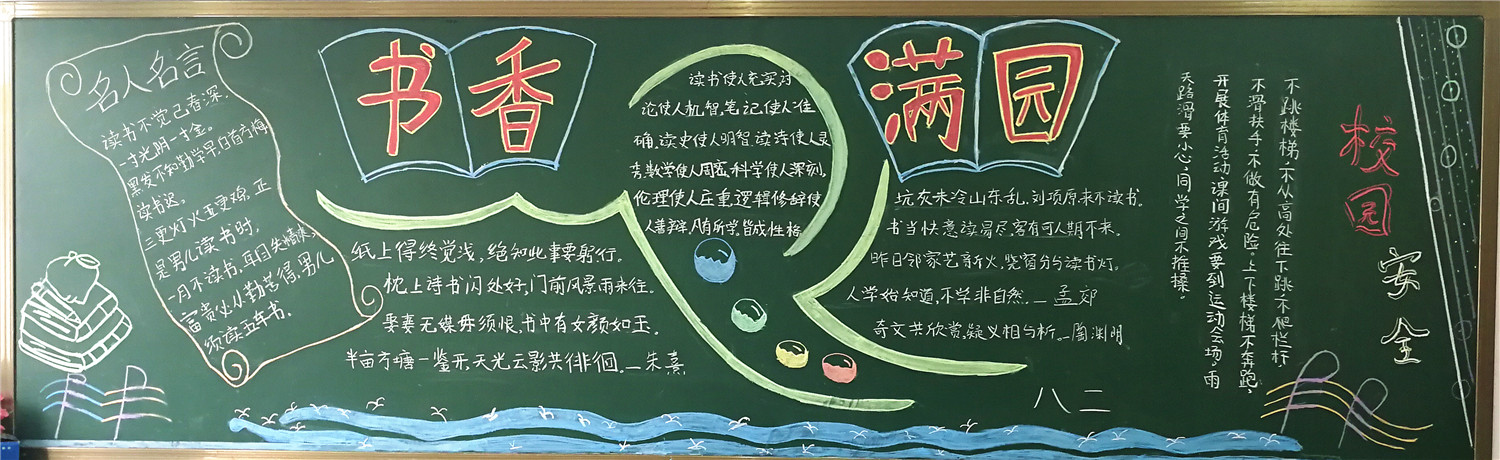 名人名言
读书不觉已春深,
一寸光阴一寸金。
黑发不知勤学早,白首方悔
读书迟。
三更灯火五更鸡,正
是男儿读书时,
一月不读书,耳目失精爽。
富贵必从勤苦得,男儿
须读五车书。
书香
满园
读书使人充实,讨
论使人机智,笔记使人准
确,读史使人明智,读诗使人灵
秀,数学使人周密,科学使人深刻,
伦理使人庄重,逻辑修辞使
人善辩,凡有所学,皆成性格
纸上得终觉浅,绝知此事要躬行。
枕上诗书闪处好,门前风景雨来佳。
娶妻无媒毋须恨,书中有女颜如玉。
半亩方塘一鉴开,天光云影共徘徊。—朱熹
坑灰未冷山东乱,刘项原来不读书。
书当快意读易尽,客有可人期不来。
昨日邻家乞新火,晓窗分与读书灯。
人学始知道,不学非自然。—孟郊
奇文共欣赏,疑义相与析。—陶渊明
八二
校园
安全
不跳楼梯,不从高处往下跳,不爬栏杆,
不滑扶手,不做有危险。上下楼梯不奔跑,
开展体育活动,课间游戏要到运动会场。雨
天路滑要小心,同学之间不推搡。